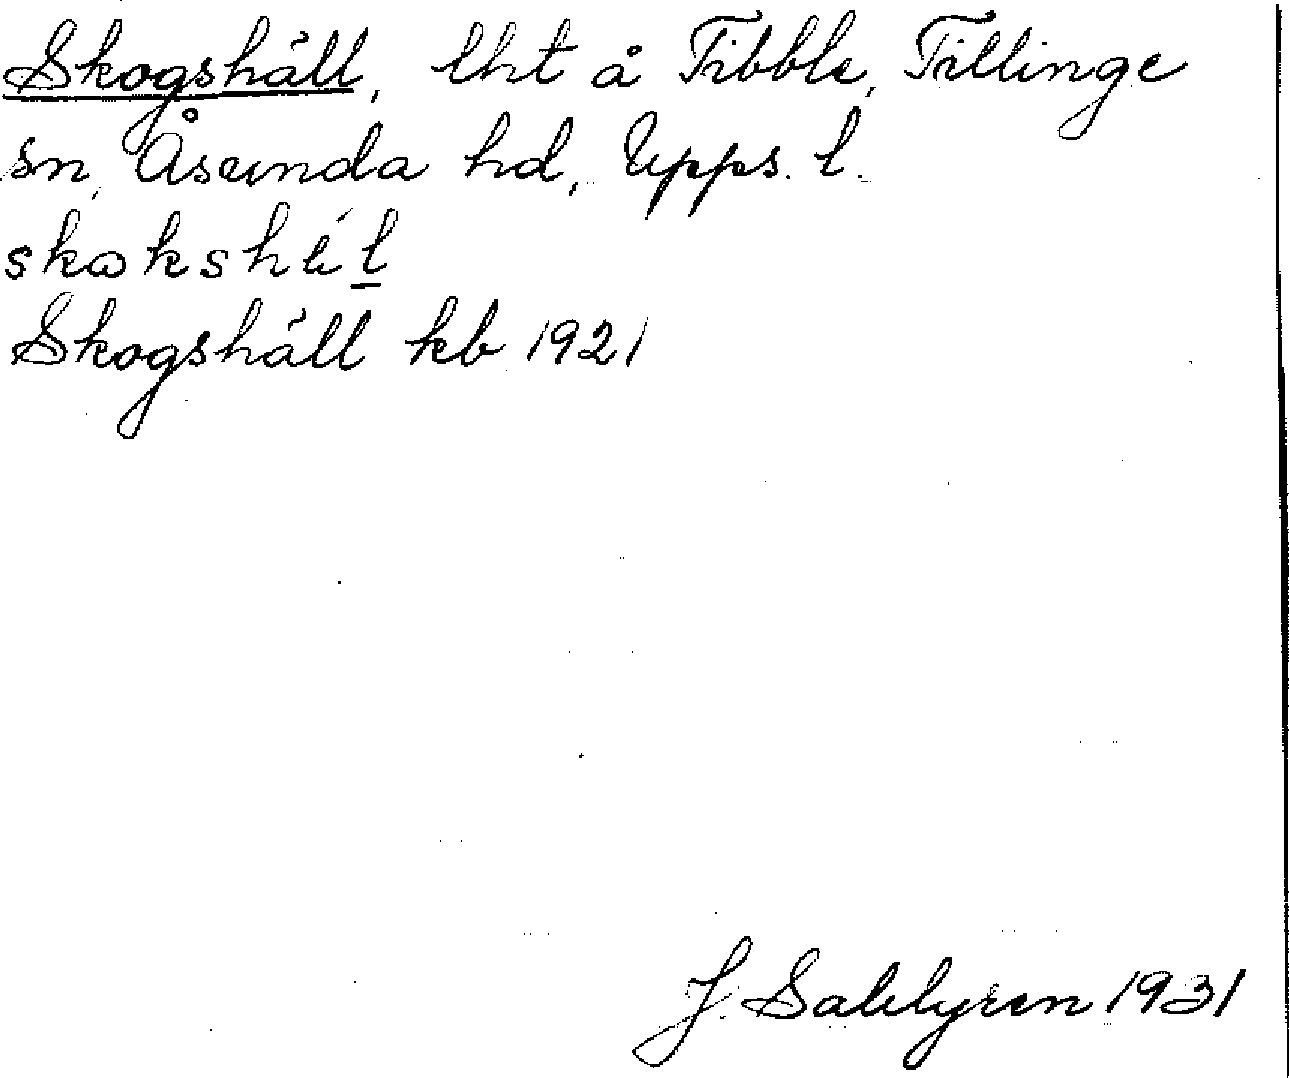 Skogshäll, lht å Tibble, Tillinge
sn, Åsunda hd, Upps. l.
Skogshäll kb 1921
J. Sahlgren 1931